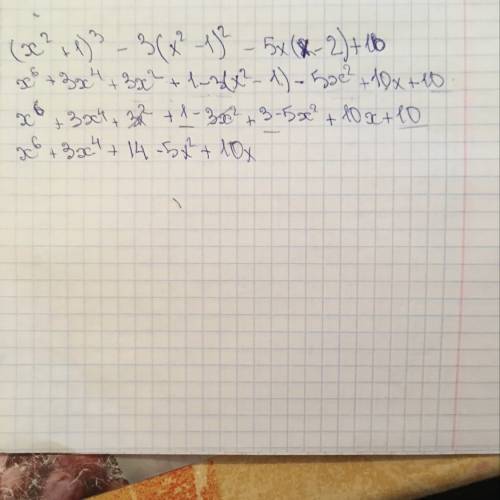 (x² + 1)³ - 3(x² - 1)² - 5x(x - 2) + 10
x⁶ + 3x⁴ + 3x² + 1 - 3(x² - 1) - 5x² + 10x + 10
x⁶ + 3x⁴ + 3x² + 1 - 3x² + 3 - 5x² + 10x + 10
x⁶ + 3x⁴ + 14 - 5x² + 10x